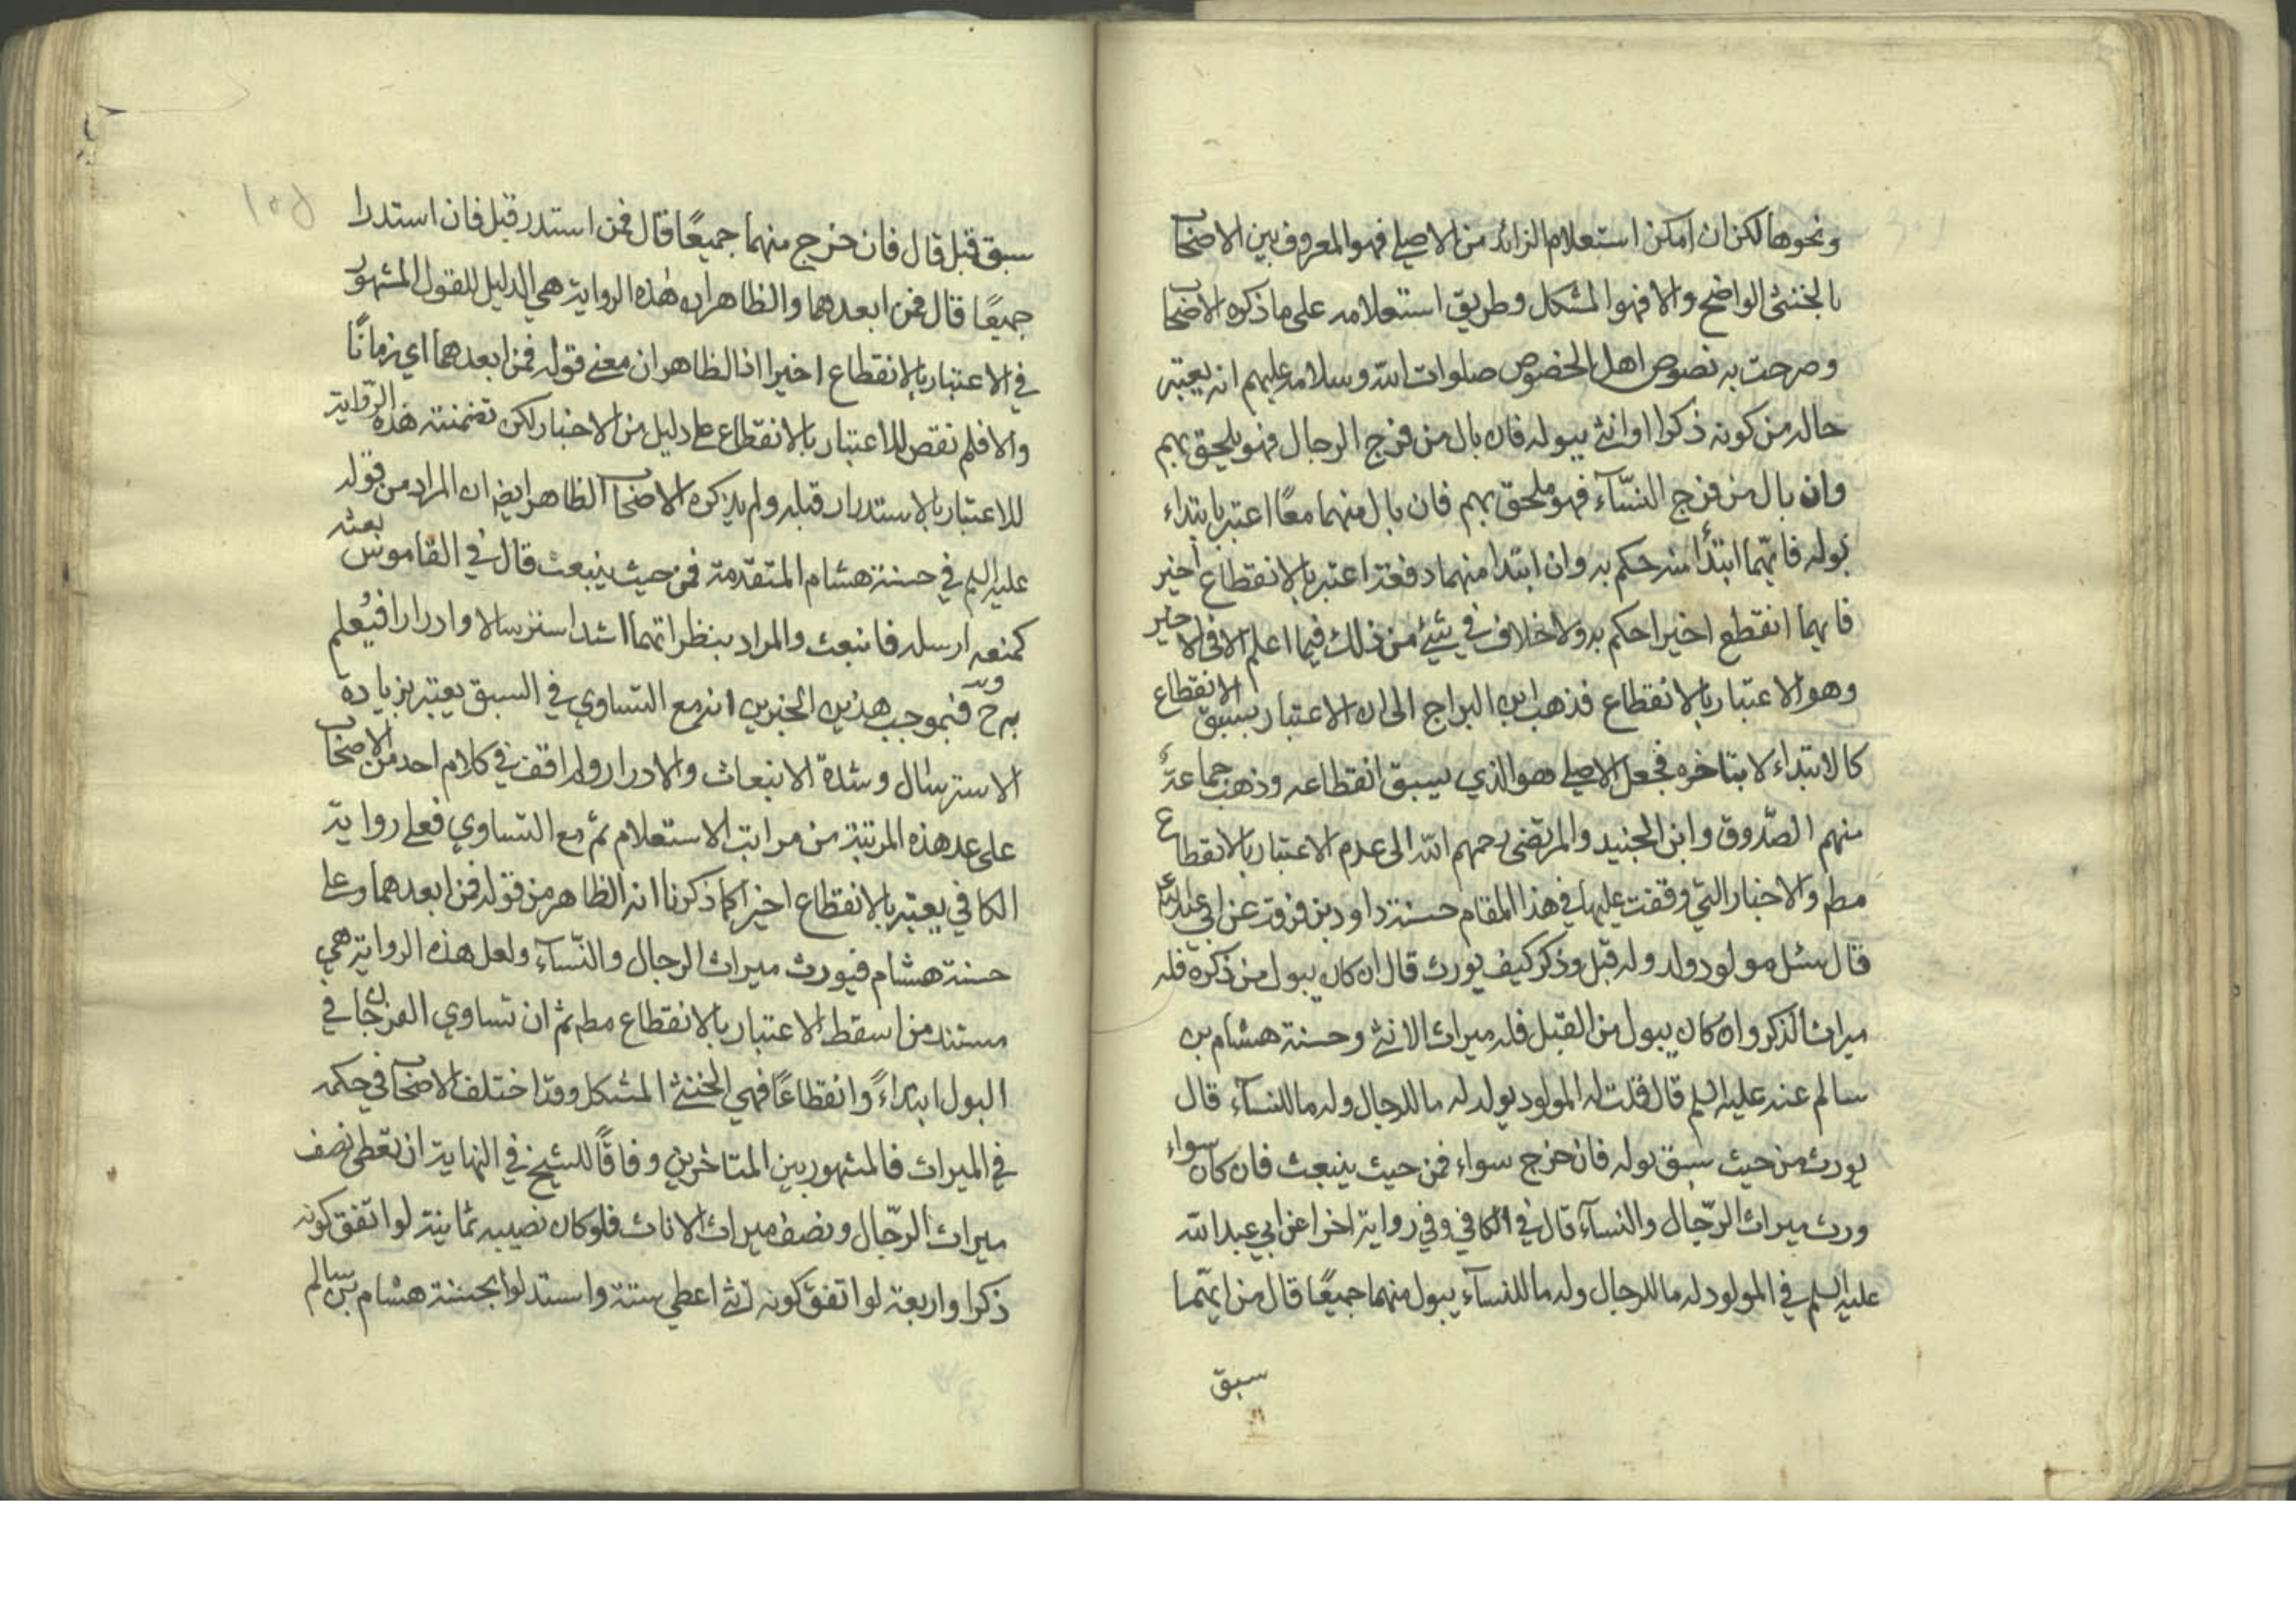 ونحوها لكن ان امكن استعلام الزائد من الاصلي فهو المعروف بين الاصحاب
بالخنثى الواضح والا فهو المشكل وطريق استعلامه على ما ذكره الاصحاب
وصرحت به نصوص اهل الخصوص صلوات الله وسلامه عليهم انه يعتبر
حاله من كونه ذكرا او انثى ببوله فان بال من فرج الرجال فهو يلحق بهم
وان بال من فرج النسآء فهو ملحق بهم فان بال منهما معًا اعتبر بابتداء
بوله فايهما ابتدأ منه حكم به وان ابتدا منهما دفعة اعتبر بالانقطاع اخير
فايهما انقطع اخيرا حكم به ولا خلاف في شيئ من ذلك فيما اعلم الا في الاخير
وهو الاعتبار بالانقطاع فذهب ابن البراج الى ان الاعتبار بسبق الانقطاع
كالابتداء لا بتاخره فجعل الاصلي هو الذي يسبق انقطاعه وذهب جماعة
منهم الصدوق وابن الجنيد والمرتضى رحمهم الله الى عدم الاعتبار بالانقطاع
مطم والاخبار التي وقفت عليها في هذا المقام حسنة داود بن فرقد عن ابي عبد الله ع
قال سئل مولود ولد وله قبل وذكر كيف يورث قال ان كان يبول من ذكره فله
ميراث الذكر وان كان يبول من القبل فله ميراث الانثى وحسنة هشام بن
سالم عنه عليه السلم قال قلت له المولود يولد له ما للرجال وله ما للنسآء قال
يورث من حيث سبق بوله فان خرج سواء فمن حيث ينبعث فان كان سواء
ورث ميراث الرجال والنسآء قال في الكافي وفي رواية اخرا عن ابي عبد الله
عليه السلم في المولود له ما للرجال وله ما للنسآء يبول منهما جميعًا قال من ايهما
سبق
سبق قبل قال فان خرج منهما جميعًا قال فمن استدر قبل فان استدرا
جميعًا قال فمن ابعدهما والظاهر ان هذه الرواية هي الدليل للقول المشهور
في الاعتبار بالانقطاع اخيرا اذ الظاهر ان معنى قوله فمن ابعدهما اي زمانًا
والا فلم نقص للاعتبار بالانقطاع على دليل من الاخبار لكن تضمنته هذه الرواية
للاعتبار بالاستدرار قبله ولم يذكره الاصحاب الظاهر ايضا ان المراد من قوله
عليه السلم في حسنة هشام المتقدمة فمن حيث ينبعث قال في القاموس بعثه
كمنعه ارسله فانبعث والمراد ينظر ايهما اشد استرسالا وادرارا فيعلم
به ح فبموجب هذين الخبرين انه مع التساوي في السبق يعتبر بزيادة
الاسترسال وشدة الانبعاث والادرار ولم اقف في كلام احد من الاصحاب
على عد هذه المرتبة من مراتب الاستعلام ثم مع التساوي فعلى رواية
الكافي يعتبر بالانقطاع اخيرا كما ذكرنا انه الظاهر من قوله فمن ابعدهما وعلى
حسنة هشام فيورث ميراث الرجال والنسآء ولعل هذه الرواية هي
مستند من اسقط الاعتبار بالانقطاع مطم ثم ان تساوي الفرجان في
البول ابتداءً وانقطاعًا فهي الخنثى المشكل وقد اختلف الاصحاب في حكمه
في الميراث فالمشهور بين المتاخرين وفاقًا للشيخ في النهاية ان تعطى نصف
ميراث الرجال ونصف ميراث الاناث فلو كان نصيبه ثمانية لو اتفق كونه
ذكرا واربعة لو اتفق كونه انثى اعطي ستة واستدلوا بحسنة هشام بن سالم